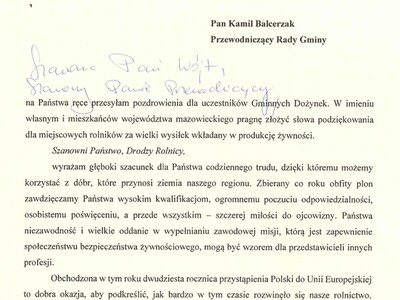 Pan Kamil Balcerzak
Przewodniczący Rady Gminy
Szanowna Pani Wójt,
Szanowny Panie Przewodniczący
na Państwa ręce przesyłam pozdrowienia dla uczestników Gminnych Dożynek. W imieniu
własnym i mieszkańców województwa mazowieckiego pragnę złożyć słowa podziękowania
dla miejscowych rolników za wielki wysiłek wkładany w produkcję żywności.
Szanowni Państwo, Drodzy Rolnicy,
wyrażam głęboki szacunek dla Państwa codziennego trudu, dzięki któremu możemy
korzystać z dóbr, które przynosi ziemia naszego regionu. Zbierany co roku obfity plon
zawdzięczamy Państwa wysokim kwalifikacjom, ogromnemu poczuciu odpowiedzialności,
osobistemu poświęceniu, a przede wszystkim – szczerej miłości do ojcowizny. Państwa
niezawodność i wielkie oddanie w wypełnianiu zawodowej misji, którą jest zapewnienie
społeczeństwu bezpieczeństwa żywnościowego, mogą być wzorem dla przedstawicieli innych
profesji.
Obchodzona w tym roku dwudziesta rocznica przystąpienia Polski do Unii Europejskiej
to dobra okazja, aby podkreślić, jak bardzo w tym czasie rozwinęło się nasze rolnictwo.